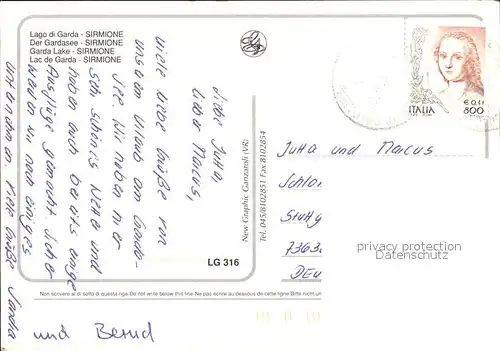 Lago di Garda - SIRMIONE
Der Gardasee - SIRMIONE
Garda Lake - SIRMIONE
Lac de Garda - SIRMIONE
Liebe Jutta,
lieber Marcus,
viele liebe Grüße von
unserem Urlaub am Garda-
see. Wir haben hier
sehr schönes Wetter und
haben auch bereits einige
Ausflüge gemacht. Sicher
werden wir noch einiges
unternehmen. Viele Grüße Sandra
und Bernd
New Graphic Ganzaroli (VR)
Tel. 045/8102851 Fax 8102854
LG 316
€ 0,41
ITALIA
800
Jutta und Marcus
Schlo
Stuttg
7363
DEU
privacy protection
Datenschutz
Non scrivere al di sotto di questa riga. Do not write below this line. Ne pas écrire au dessous de cette ligne. Bitte nicht unt